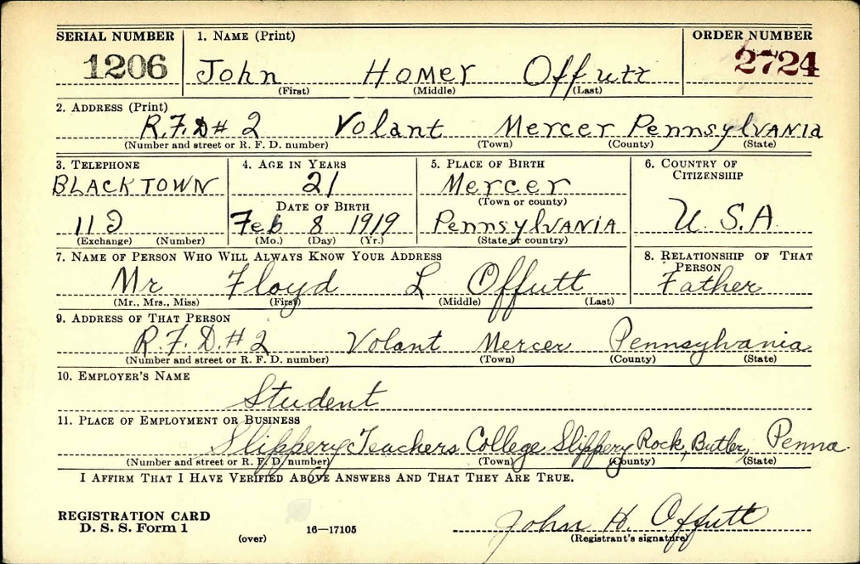 SERIAL NUMBER 1. NAME (Print) ORDER NUMBER
1206 John Homer Offutt 2724
(First) (Middle) (Last)
2. ADDRESS (Print)
R.F.D# 2 Volant Mercer Pennsylvania
(Number and street or R. F. D. number) (Town) (County) (State)
3. TELEPHONE 4. AGE IN YEARS 5. PLACE OF BIRTH 6. COUNTRY OF CITIZENSHIP
BLACKTOWN 21 Mercer
DATE OF BIRTH (Town or county)
112 Feb 8 1919 Pennsylvania U.S.A.
(Exchange) (Number) (Mo.) (Day) (Yr.) (State or country)
7. NAME OF PERSON WHO WILL ALWAYS KNOW YOUR ADDRESS 8. RELATIONSHIP OF THAT PERSON
Mr Floyd L Offutt Father
(Mr., Mrs., Miss) (First) (Middle) (Last)
9. ADDRESS OF THAT PERSON
R.F.D.#2 Volant Mercer Pennsylvania
(Number and street or R. F. D. number) (Town) (County) (State)
10. EMPLOYER'S NAME
Student
11. PLACE OF EMPLOYMENT OR BUSINESS
Slippery Teachers College Slippery Rock, Butler, Penna.
(Number and street or R. F. D. number) (Town) (County) (State)
I AFFIRM THAT I HAVE VERIFIED ABOVE ANSWERS AND THAT THEY ARE TRUE.
REGISTRATION CARD
D. S. S. Form 1 16—17105 John H. Offutt
(over) (Registrant's signature)